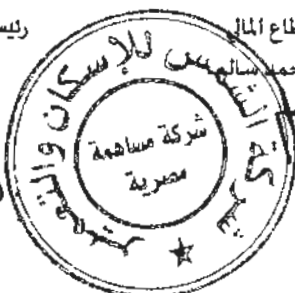 رئيس
طاع المال
حمد سالم
شركة الشمس للإسكان والتعمير
شركة مساهمة
مصرية